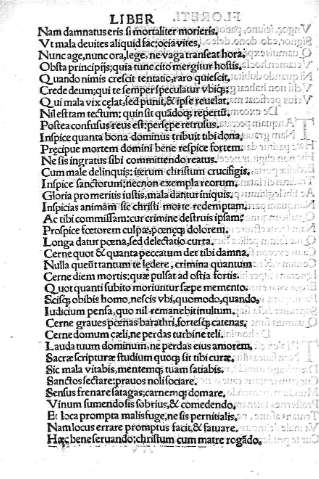 LIBER
Nam damnatus eris si mortaliter morieris.
Vt mala deuites aliquid fac, ocia vites,
Nunc age, nunc ora, lege, ne vaga transeat hora.
Obsta principijs, quia tunc cito mergitur hostis,
Quando nimis crescit tentatio, raro quiescit,
Crede deum, qui te semper speculatur vbiq;,
Qui mala vix celat, sed punit, & ipse reuelat,
Nil est tam tectum, quin sit quādoq; repertū.
Postea confusus reus est, persepe retrusus.
Inspice quanta bona dominus tribuit tibi dona,
Precipue mortem domini bene respice fortem.
Ne sis ingratus sibi committendo reatus.
Cum male delinquis, iterum christum crucifigis,
Inspice sanctorum, necnon exempla reorum,
Gloria pro meritis iustis, mala dantur iniquis.
Inspicias animam sic christi morte redemptam,
Ac tibi commissam, cur crimine destruis ipsam,
Prospice fœtorem culpæ, pœneq; dolorem.
Longa datur pœna, sed delectatio curta.
Cerne quot & quanta peccatum det tibi damna,
Nulla queūt tantum te ledere, crimina quantum
Cerne diem mortis, quæ pulsat ad ostia fortis.
Quot quanti subito moriuntur sæpe memento.
Scisq; obibis homo, nescis vbi, quomodo, quando,
Iudicium pensa, quo nil remanebit inultum.
Cerne graues pœnas barathri, fortesq; catenas,
Cerne domum cæli, ne perdas turbine teli.
Lauda tuum dominum, ne perdas eius amorem,
Sacræ scripturæ studium quoq; sit tibi curæ,
Sic mala vitabis, mentemq; tuam satiabis.
Sanctos sectare, prauos noli sociare.
Sensus frenare satagas, carnemq; domare,
Vinum sumendo sis sobrius, & comedendo.
Et loca prompta malis fuge, ne sis pernitialis,
Nam locus errare promptus facit, & fatuare.
Hæc bene seruando, christum cum matre rogādo.